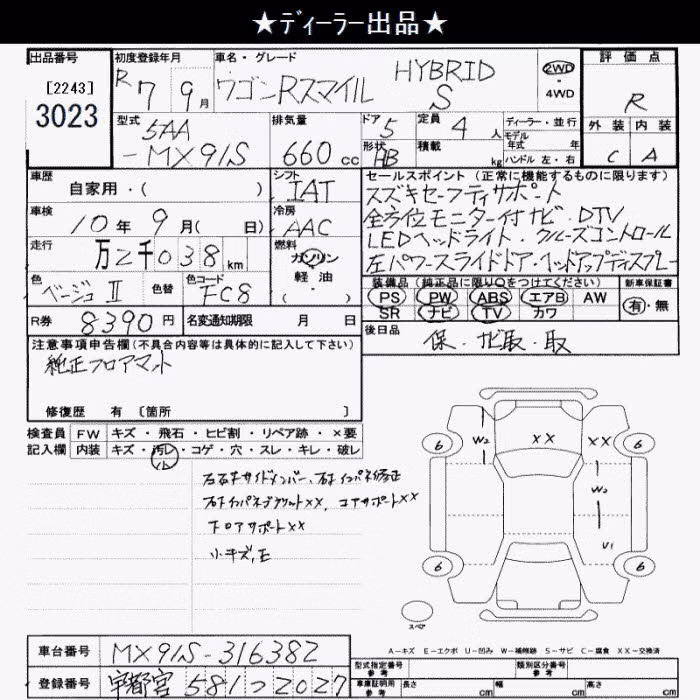 ★ディーラー出品★
出品番号 初度登録年月 車名・グレード 評価点
[2243] R 7年 9月 ワゴンRスマイル HYBRID S 2WD・4WD R
3023
型式 排気量 ドア 5 定員 4人 ディーラー・並行 外装 内装
5AA モデル年式 年
-MX91S 660cc 形状 HB 積載 kg ハンドル 左・右 C A
車歴 シフト セールスポイント (正常に機能するものに限ります)
自家用・( ) IAT スズキセーフティサポート
車検 冷房 全方位モニター付ナビ・DTV
10年 9月( 日) AAC LEDヘッドライト・クルーズコントロール
走行 燃料
万2千038km ガソリン・軽油( ) 左パワースライドドア・ヘッドアップディスプレー
色 色替 色コード 装備品 (純正品に限り○をつけてください) 新車保証書
ベージュII FC8 PS PW ABS エアB AW 有・無
SR ナビ TV カワ
R券 8390円 名変通知期限 月 日 後日品
注意事項申告欄(不具合内容等は具体的に記入して下さい) 保・ナビ取・取
純正フロアマット
修復歴 有 〔箇所 〕
検査員 FW キズ・飛石・ヒビ割・リペア跡・×要
記入欄 内装 キズ・汚レ・コゲ・穴・スレ・キレ・破レ
W2 XX XX
6 6
W2
インパネ修正
XX、コアサポートXX
フロアサポートXX
U1
小キズ、E
6 6
スペア
A-キズ E-エクボ U-凹み W-補修跡 S-サビ C-腐食 XX-交換済
車台番号 MX91S-316382 型式指定番号 参考 類別区分番号 参考
登録番号 宇都宮 581つ2027 車庫証明用 参考 長さ cm 幅 cm 高さ cm